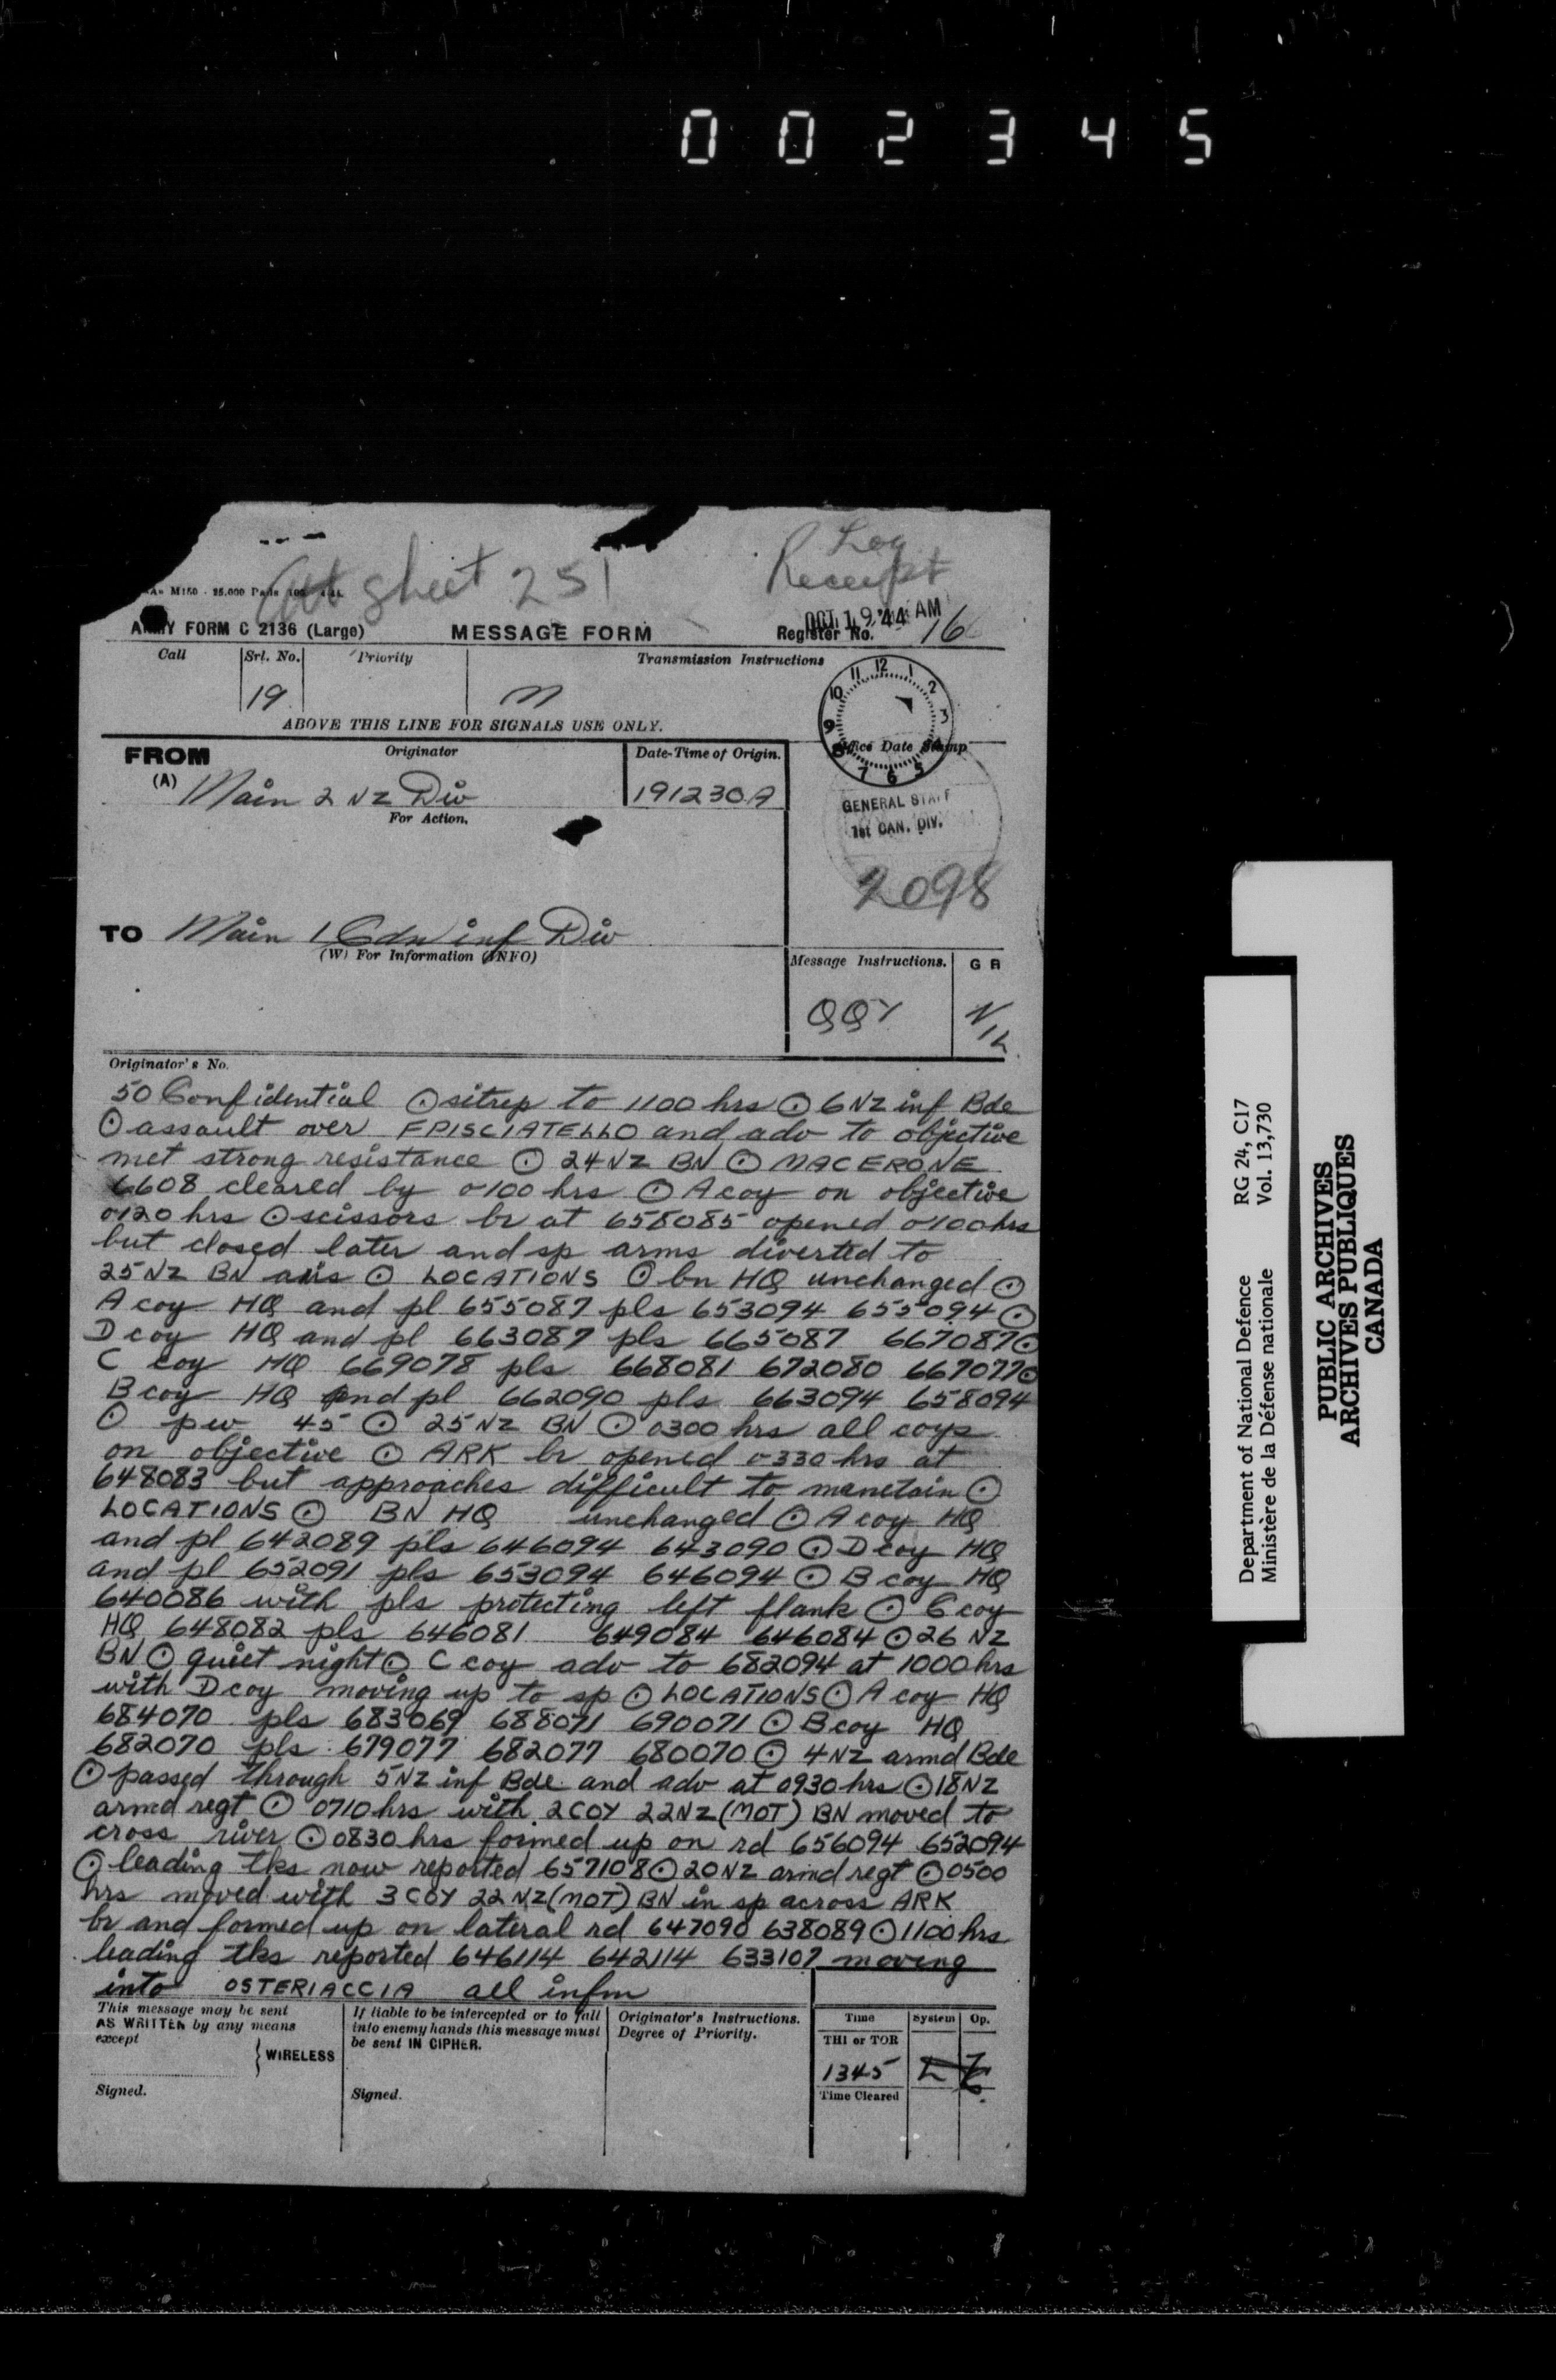 0 0 2 3 4 5
Log
sheet 251 Receipt
M150 - 25,000 Pads
OCT 19 '44 AM
ARMY FORM C 2136 (Large) MESSAGE FORM Register No. 16
Call Srl. No. Priority Transmission Instructions
19
ABOVE THIS LINE FOR SIGNALS USE ONLY.
12 1 2 3 5 6 7 8 9 10 11
FROM Originator Date-Time of Origin. Office Date Stamp
(A) Main 2 NZ Div 191230A
For Action.
GENERAL STAFF
1st CAN. DIV.
2098
TO Main 1 Cdn inf Div
(W) For Information (INFO)
Message Instructions. G R
QQY
Originator's No.
50 Confidential ⊙ sitrep to 1100 hrs ⊙ 6 NZ inf Bde
⊙ assault over EPISCIATELLO and adv to objective
met strong resistance ⊙ 24 NZ BN ⊙ MACERONE
6608 cleared by 0100 hrs ⊙ A coy on objective
0120 hrs ⊙ scissors br at 658085 opened 0100 hrs
but closed later and sp arms diverted to
25 NZ BN axis ⊙ LOCATIONS ⊙ bn HQ unchanged ⊙
A coy HQ and pl 655087 pls 653094 655094 ⊙
D coy HQ and pl 663087 pls 665087 667087 ⊙
C coy HQ 669078 pls 668081 672080 667077 ⊙
B coy HQ and pl 662090 pls 663094 658094
⊙ pw 45 ⊙ 25 NZ BN ⊙ 0300 hrs all coys
on objective ⊙ ARK br opened 0330 hrs at
648083 but approaches difficult to manetain ⊙
LOCATIONS ⊙ BN HQ unchanged ⊙ A coy HQ
and pl 642089 pls 646094 643090 ⊙ D coy HQ
and pl 652091 pls 653094 646094 ⊙ B coy HQ
640086 with pls protecting left flank ⊙ C coy
HQ 648082 pls 646081 649084 646084 ⊙ 26 NZ
BN ⊙ quiet night ⊙ C coy adv to 682094 at 1000 hrs
with D coy moving up to sp ⊙ LOCATIONS ⊙ A coy HQ
684070 pls 683069 688071 690071 ⊙ B coy HQ
682070 pls 679077 682077 680070 ⊙ 4 NZ armd Bde
⊙ passed through 5 NZ inf Bde and adv at 0930 hrs ⊙ 18 NZ
armd regt ⊙ 0710 hrs with 2 COY 22 NZ (MOT) BN moved to
cross river ⊙ 0830 hrs formed up on rd 656094 652094
⊙ leading tks now reported 657108 ⊙ 20 NZ armd regt ⊙ 0500
hrs moved with 3 COY 22 NZ (MOT) BN in sp across ARK
br and formed up on lateral rd 647090 638089 ⊙ 1100 hrs
leading tks reported 646114 642114 633107 moving
into OSTERIACCIA all infm
This message may be sent AS WRITTEN by any means except
WIRELESS
Signed.
If liable to be intercepted or to fall into enemy hands this message must be sent IN CIPHER.
Signed.
Originator's Instructions. Degree of Priority.
Time System Op.
THI or TOR
1345
Time Cleared
Department of National Defence RG 24, C17
Ministère de la Défense nationale Vol. 13,730
PUBLIC ARCHIVES
ARCHIVES PUBLIQUES
CANADA